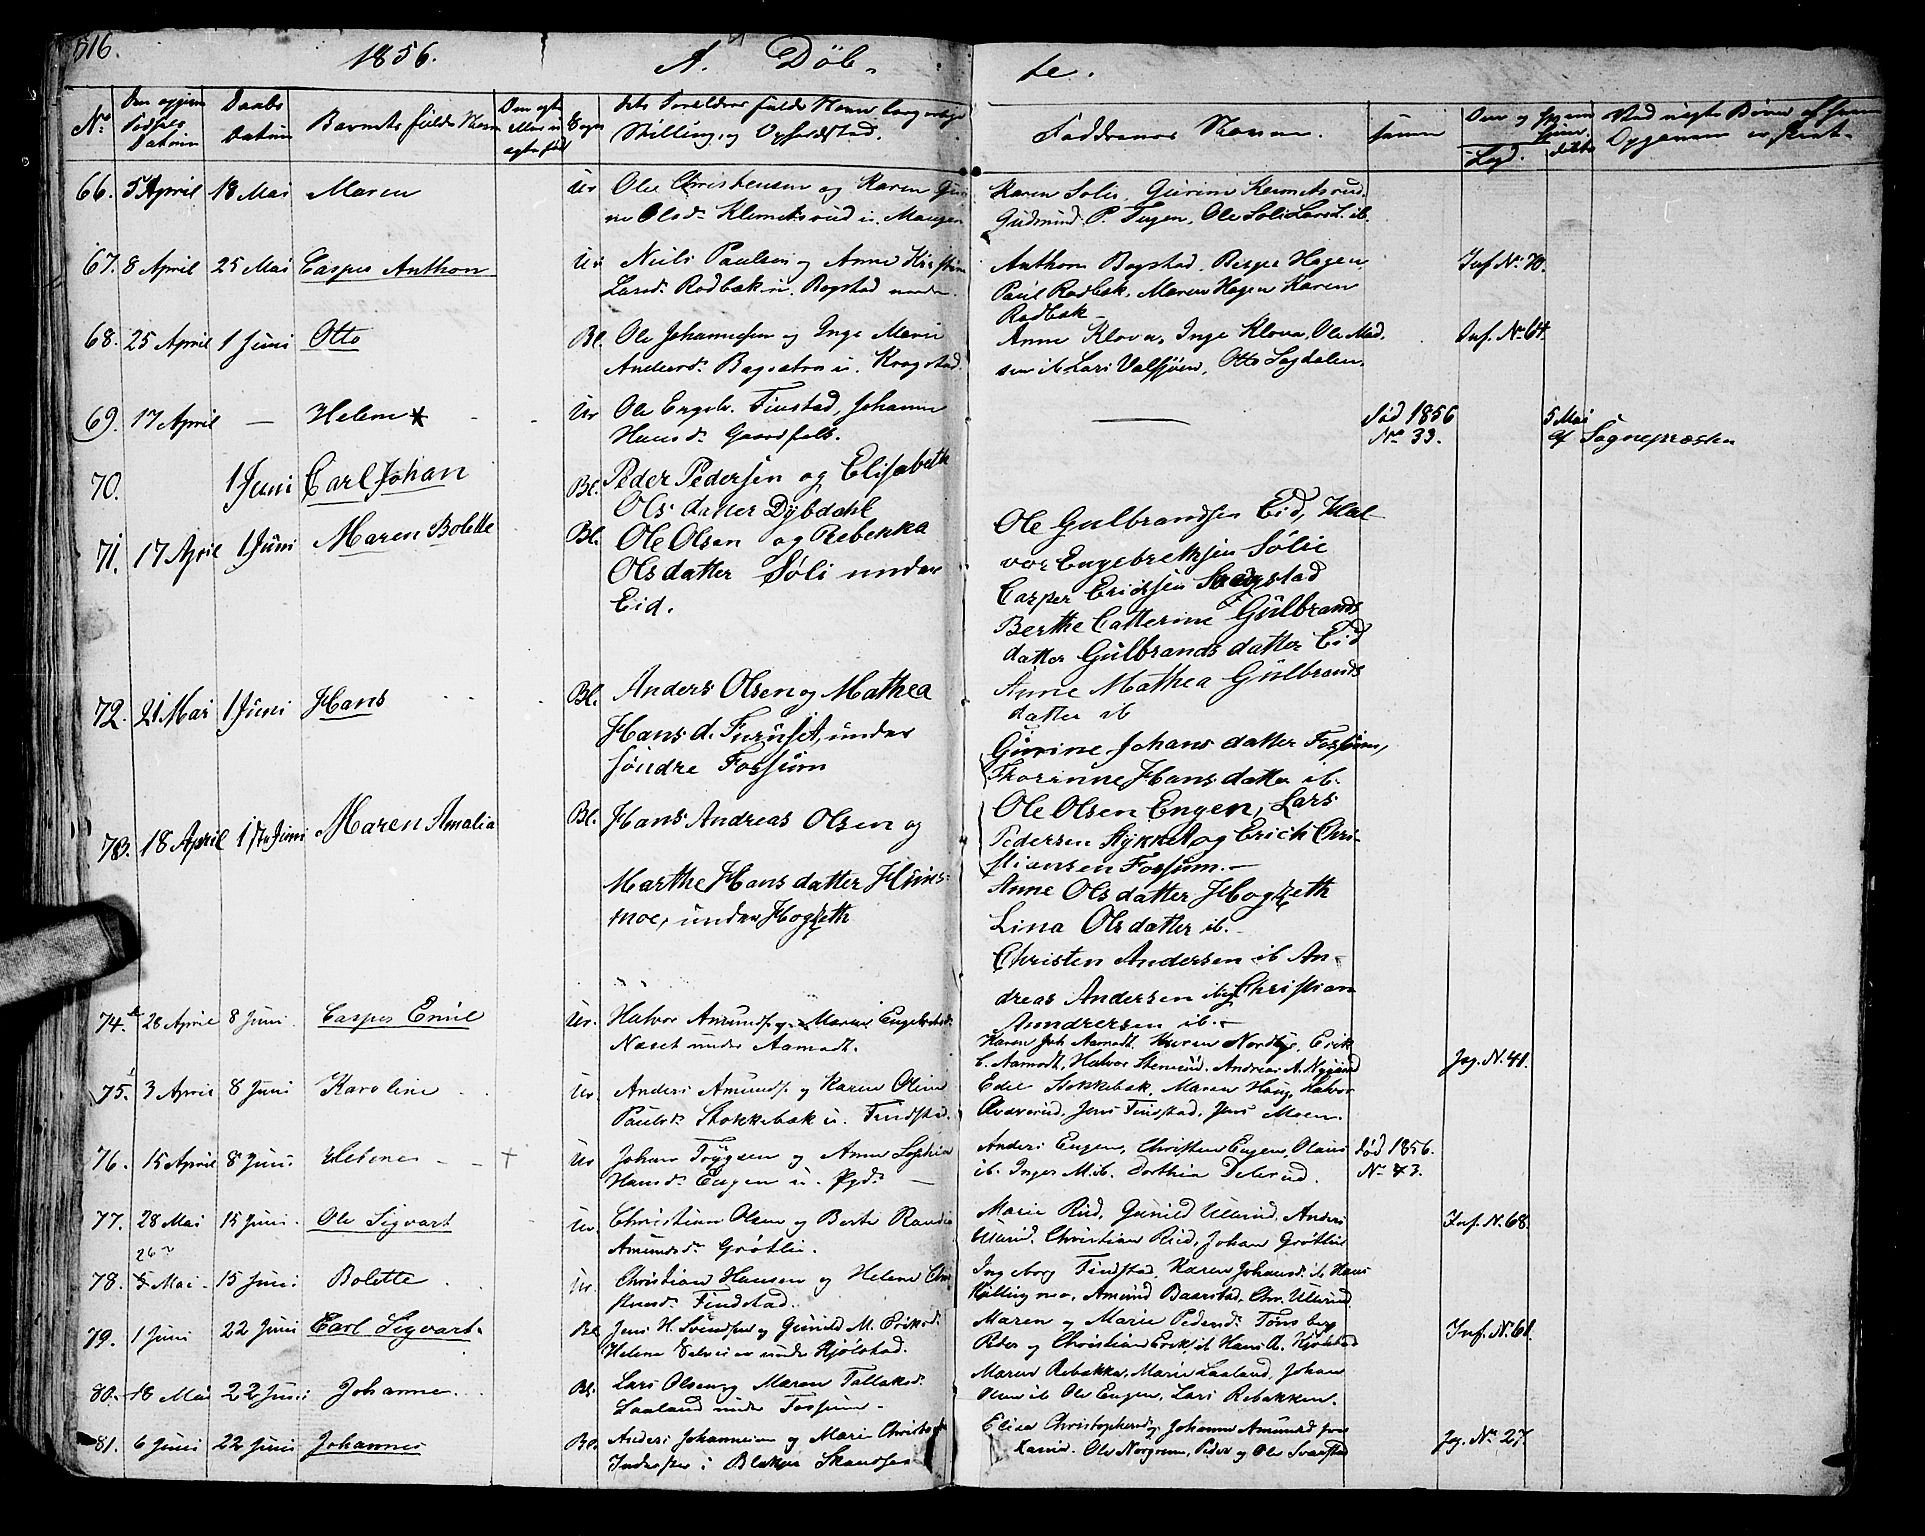 516.
1856.
A. Döb-
te.
No
Den opgivne Fødsels Datum
Daabs Datum
Barnets fulde Navn
Den ægte eller uægte født
Sogn
dets Forældres fulde Navn, borgerlige Stilling og Opholdssted.
Faddernes Navne.
Ved uægte Børn af hvem Opgaven er skeet.
66. 5 April 18 Mai Maren Ur Ole Christensen og Karen Guri-
ne Olsd. Klemetsrud u. Mangen
Karen Solie, Gurine Kemetsrud,
Gudmund P. Tugen, Ole Soli Lars L. ib.
67. 8 April 25 Mai Casper Anthon Ur Niels Paulsen og Anne Kirstine
Larsd. Rodbæk u. Bogstad
Anthon Bogstad, Berger Hagen,
Paul Rodbæk, Maren Hagen Karen
Rodbæk
Inf. No. 70.
68. 25 April 1 Juni Otto Bl. Ole Johannesen og Inge Marie
Andersd. Bagsætra u. Krogstad.
Anne Klova, Inge Klova, Ole Mad-
sen ib Lars Valsjøen, Otto Lysdalen,
Inf. No. 64.
69. 17 April — Helene Ur Ole Engebr. Finstad, Johanne
Hansd. Gaardfolk.
Død 1856
No. 33.
5 Mai
af Sognepræsten
70. 1 Juni Carl Johan Bl. Peder Pedersen og Elisabeth
Olsdatter Dybdahl
71. 17 April 1 Juni Maren Bolette Bl. Ole Olsen og Rebekka
Olsdatter Søli under
Eid.
Ole Gulbrandsen Eid, Hal-
vor Engebrethsen Sølie
Casper Ericksen Krogstad
Berthe Catterine Gulbrands
datter Gulbrands datter Eid
Anne Mathea Gulbrands
datter ib
72. 21 Mai 1 Juni Hans Bl. Anders Olsen og Mathea
Hans d. Furuset, under
søndre Fossum
Gurine Johans datter Fossum,
Thorinne Hans datter ib.
Ole Olsen Engen, Lars
Pedersen Stykket og Erich Chri-
stiansen Fossum.—
73. 18 April 1ste Juni Maren Amalia Bl. Hans Andreas Olsen og
Marthe Hans datter Huus-
moe, under Hogseth
Anne Olsdatter Hogseth
Lina Olsdatter ib.
Christen Andersen ib An-
dreas Andersen ib og Christian
Anndrersen ib.—
74. 28 April 8 Juni. Casper Emil Ur. Halvor Amunds. og Maria Engebretsd.
Næset under Aamodt.
Karen Joh. Aamodt, Karen Nordbye, Erik
C. Aamodt, Halvor Stenerud, Andreas A.
Jag. N. 41.
75. 3 April 8 Juni Karoline Ur. Anders Amunds. og Karen Oline
Paulsd. Stokkebæk u. Findstad.
Edel Stokkebæk, Maren Haug, Halvor
Jens Finstad, Jens Moen.
76. 15 April 8 Juni Helene † Ur Johan Trygsen og Anne Sophia
Hansd. Engen u. Pgd.
Anders Engen, Christen Engen, Olaus
ib. Inger M. ib. Dorthia Delerud.
Død 1856.
No 43.
77. 28 Mai 15 Juni. Ole Sigvart Ur. Christian Olsen og Berte Randia
Amundsd. Grøtlie.
Marie Rud, Gunild Ullerud, Anders
Ullerud, Christian Rud, Johan Grøtlie
Inf. N. 68.
26
78. 5 Mai 15 Juni. Bolette Ur. Christian Hansen og Helene Chri-
stensd. Findstad.
Ingeborg Findstad, Karen Johansd. ib Hans
Amund Baarstad, Chr. Ullerud
79. 1 Juni 22 Juni Carl Sigvart Bl Jens H. Svendsen og Gunild M. Eriksd.
Helene under Kjølstad.
Maren og Marie Pedersd. Tønsberg
Peder og Christian Erik. ib Hans A. Kjølstad
Inf. N. 61.
80. 18 Mai 22 Juni Johanne. Bl. Lars Olsen og Maren Tallaksd.
Laaland under Fossum
Maren Rebakka, Marie Laaland, Johan
Olsen ib Ole Engen, Lars Rebakken.
81. 6 Juni 22 Juni Johannes Bl. Anders Johannesen og Mari Christophd.
Inderster i Blakjer Skandse
Elise Christophersd, Johanne Amunds
Ole Norgren, Peder og Ole Svarstad
Jag. No. 27.